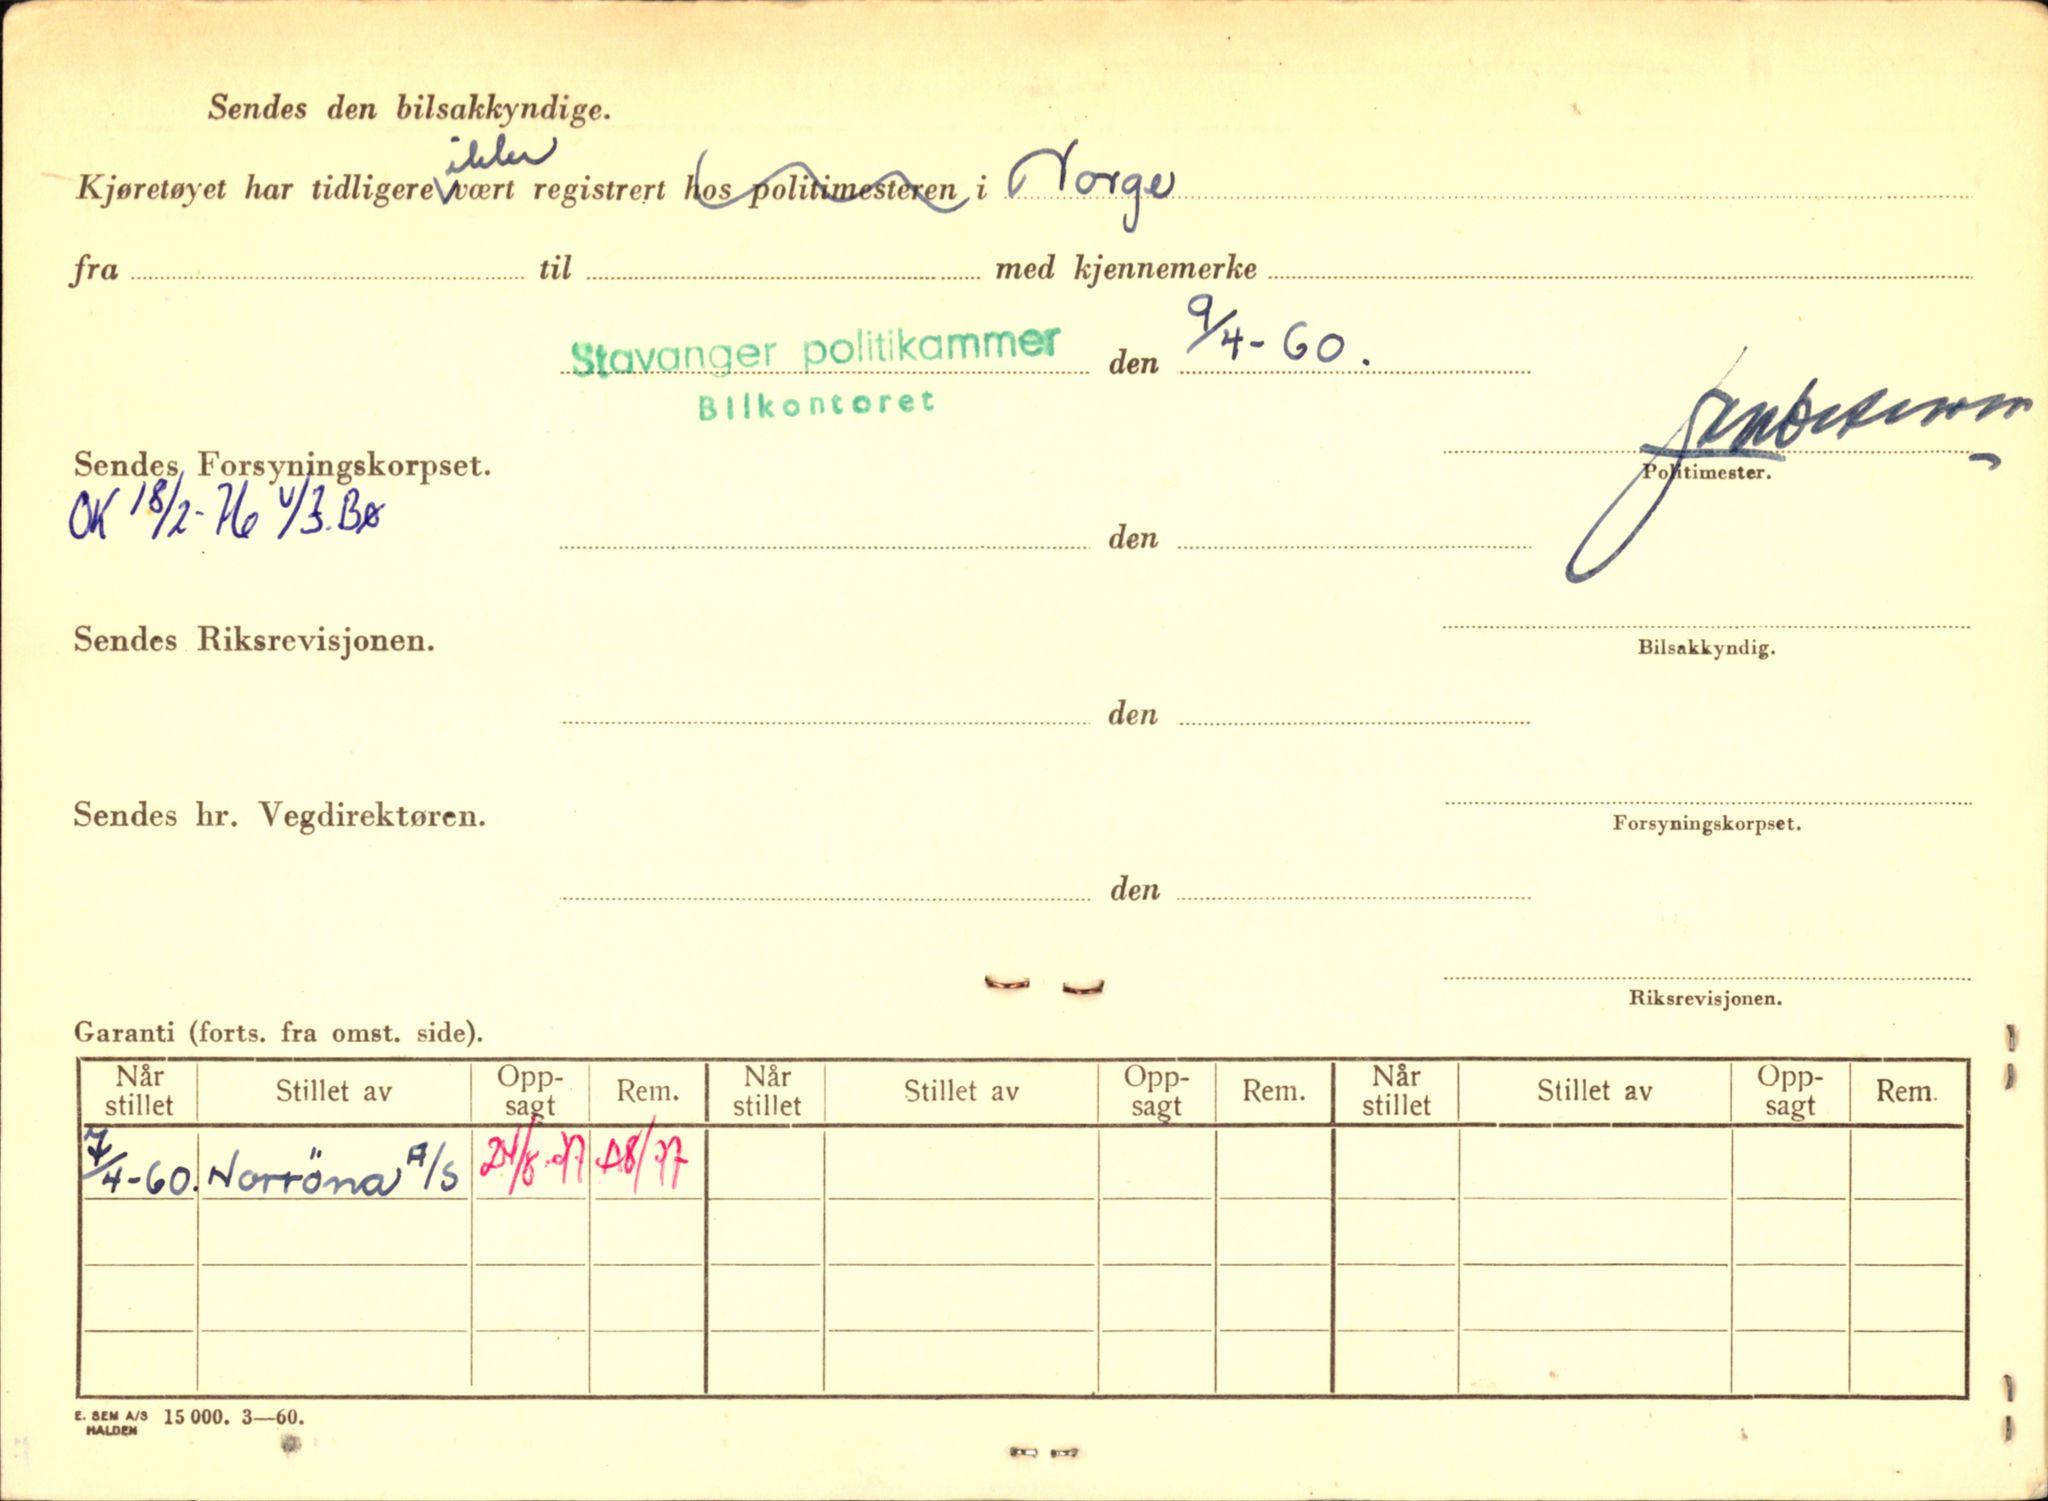 Sendes den bilsakkyndige.
ikke
Kjøretøyet har tidligere vært registrert hos politimesteren i Norge
fra til med kjennemerke
Stavanger politikammer den 9/4-60.
Bilkontoret
Sendes Forsyningskorpset.
Politimester.
OK 18/2-76 v/J. Bø
den
Sendes Riksrevisjonen.
Bilsakkyndig.
den
Sendes hr. Vegdirektøren.
Forsyningskorpset.
den
Riksrevisjonen.
Garanti (forts. fra omst. side).
Når stillet Stillet av Opp-sagt Rem. Når stillet Stillet av Opp-sagt Rem. Når stillet Stillet av Opp-sagt Rem.
7/4-60. Norröna A/S 24/8-77 /77
E. SEM A/S 15000. 3—60.
HALDEN